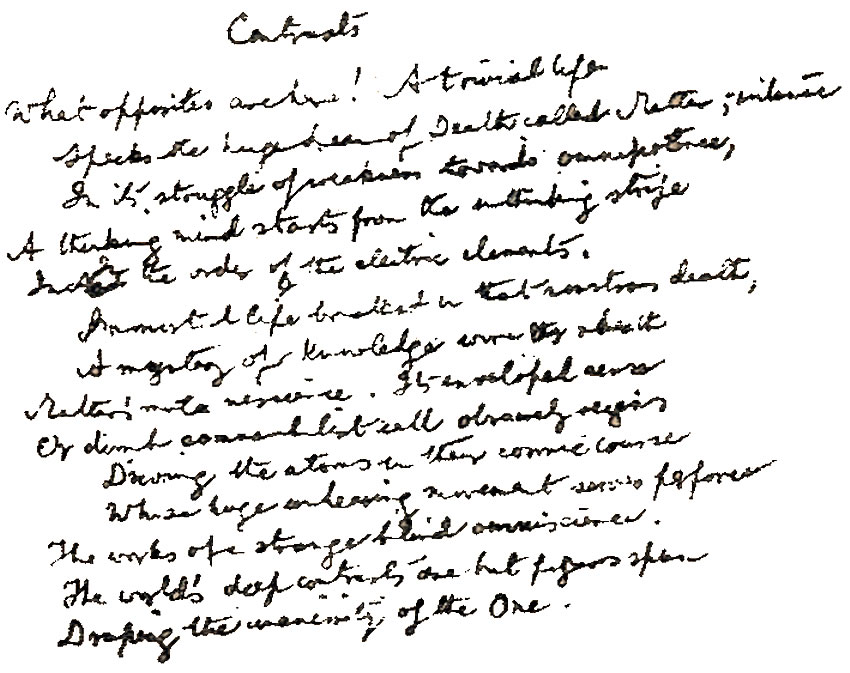 Contrasts
What opposites are here! A trivial life
Specks the huge dream of Death called Matter; intense
In its struggle of weakness towards omnipotence,
A thinking mind starts from the unthinking strife
In the order of the electric elements.
Immortal life breathed in that monstrous death,
A mystery of Knowledge wore as sheath
Matter's mute nescience. Its enveloped sense
Or dumb somnambulist will obscurely reigns
Driving the atoms in their cosmic course
Whose huge unhearing movement serves perforce
The works of a strange blind omniscience.
The world's deep contrasts are but figures spun
Draping the unanimity of the One.